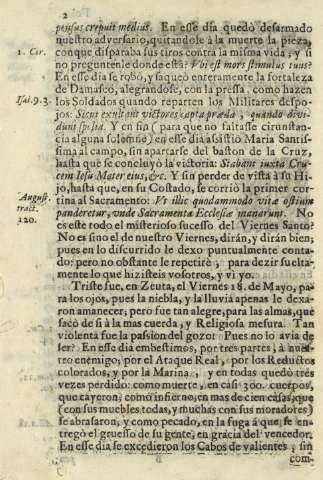 2
pensus crepuit medius. En esse dia quedò desarmado
nuestro adversario, quitandole à la muerte la pieza,
1. Cor.
con que disparaba sus tiros contra la misma vida, y si
no preguntenle donde està? Vbi est mors stimulus tuus?
En esse dia se robo, y saqueò enteramente la fortaleza
de Damasco, alegrandose, con la pressa, como hazen
Isai. 9. 3.
los Soldados quando reparten los Militares despo-
jos: Sicut exultant victores capta præda, quando divi-
dunt spolia. Y en fin (para que no faltasse cirunstan-
cia alguna solomne) en esse dia assistiò Maria Santis-
sima al campo, sin apartarse del baston de la Cruz,
hasta que se concluyò la victoria: Stabant iuxta Cru-
cem Iesu Mater eius, &c. Y sin perder de vista à su Hi-
jo, hasta que, en su Costado, se corriò la primer cor-
August.
tract.
120.
tina al Sacramento: Vt illic quodammodo vitæ ostium
panderetur, vnde Sacramenta Ecclesiæ manarunt. No
es este todo el misterioso sucesso del Viernes Santo?
No es sino el de nuestro Viernes, diràn, y diràn bien,
pues en lo discurrido le dexo puntualmente conta-
do: pero no obstante le repetirè, para dezir fuelta-
mente lo que hizisteis vosotros, y vi yo.
Triste fue, en Zeuta, el Viernes 18. de Mayo, pa-
ra los ojos, pues la niebla, y la lluvia apenas le dexa-
ron amanecer; pero fue tan alegre, para las almas, que
sacò de si à la mas cuerda, y Religiosa mesura. Tan
violenta fue la passion del gozo! Pues no lo avia de
ser? En esse dia embestimos, por tres partes, à nues-
tro enemigo; por el Ataque Real, por los Reductos
colorados, y por la Marina, y en todas quedò tres
vezes perdido: como muerte, en casi 300. cuerpos,
que cayeron; como infierno, en mas de cien casas, que
(con sus muebles todas, y muchas con sus moradores)
se abrasaron, y como pecado, en la fuga à que se en-
tregò el gruesso de su gente, en gracia del vencedor.
En esse dia se excedieron los Cabos de valientes, sin
com-